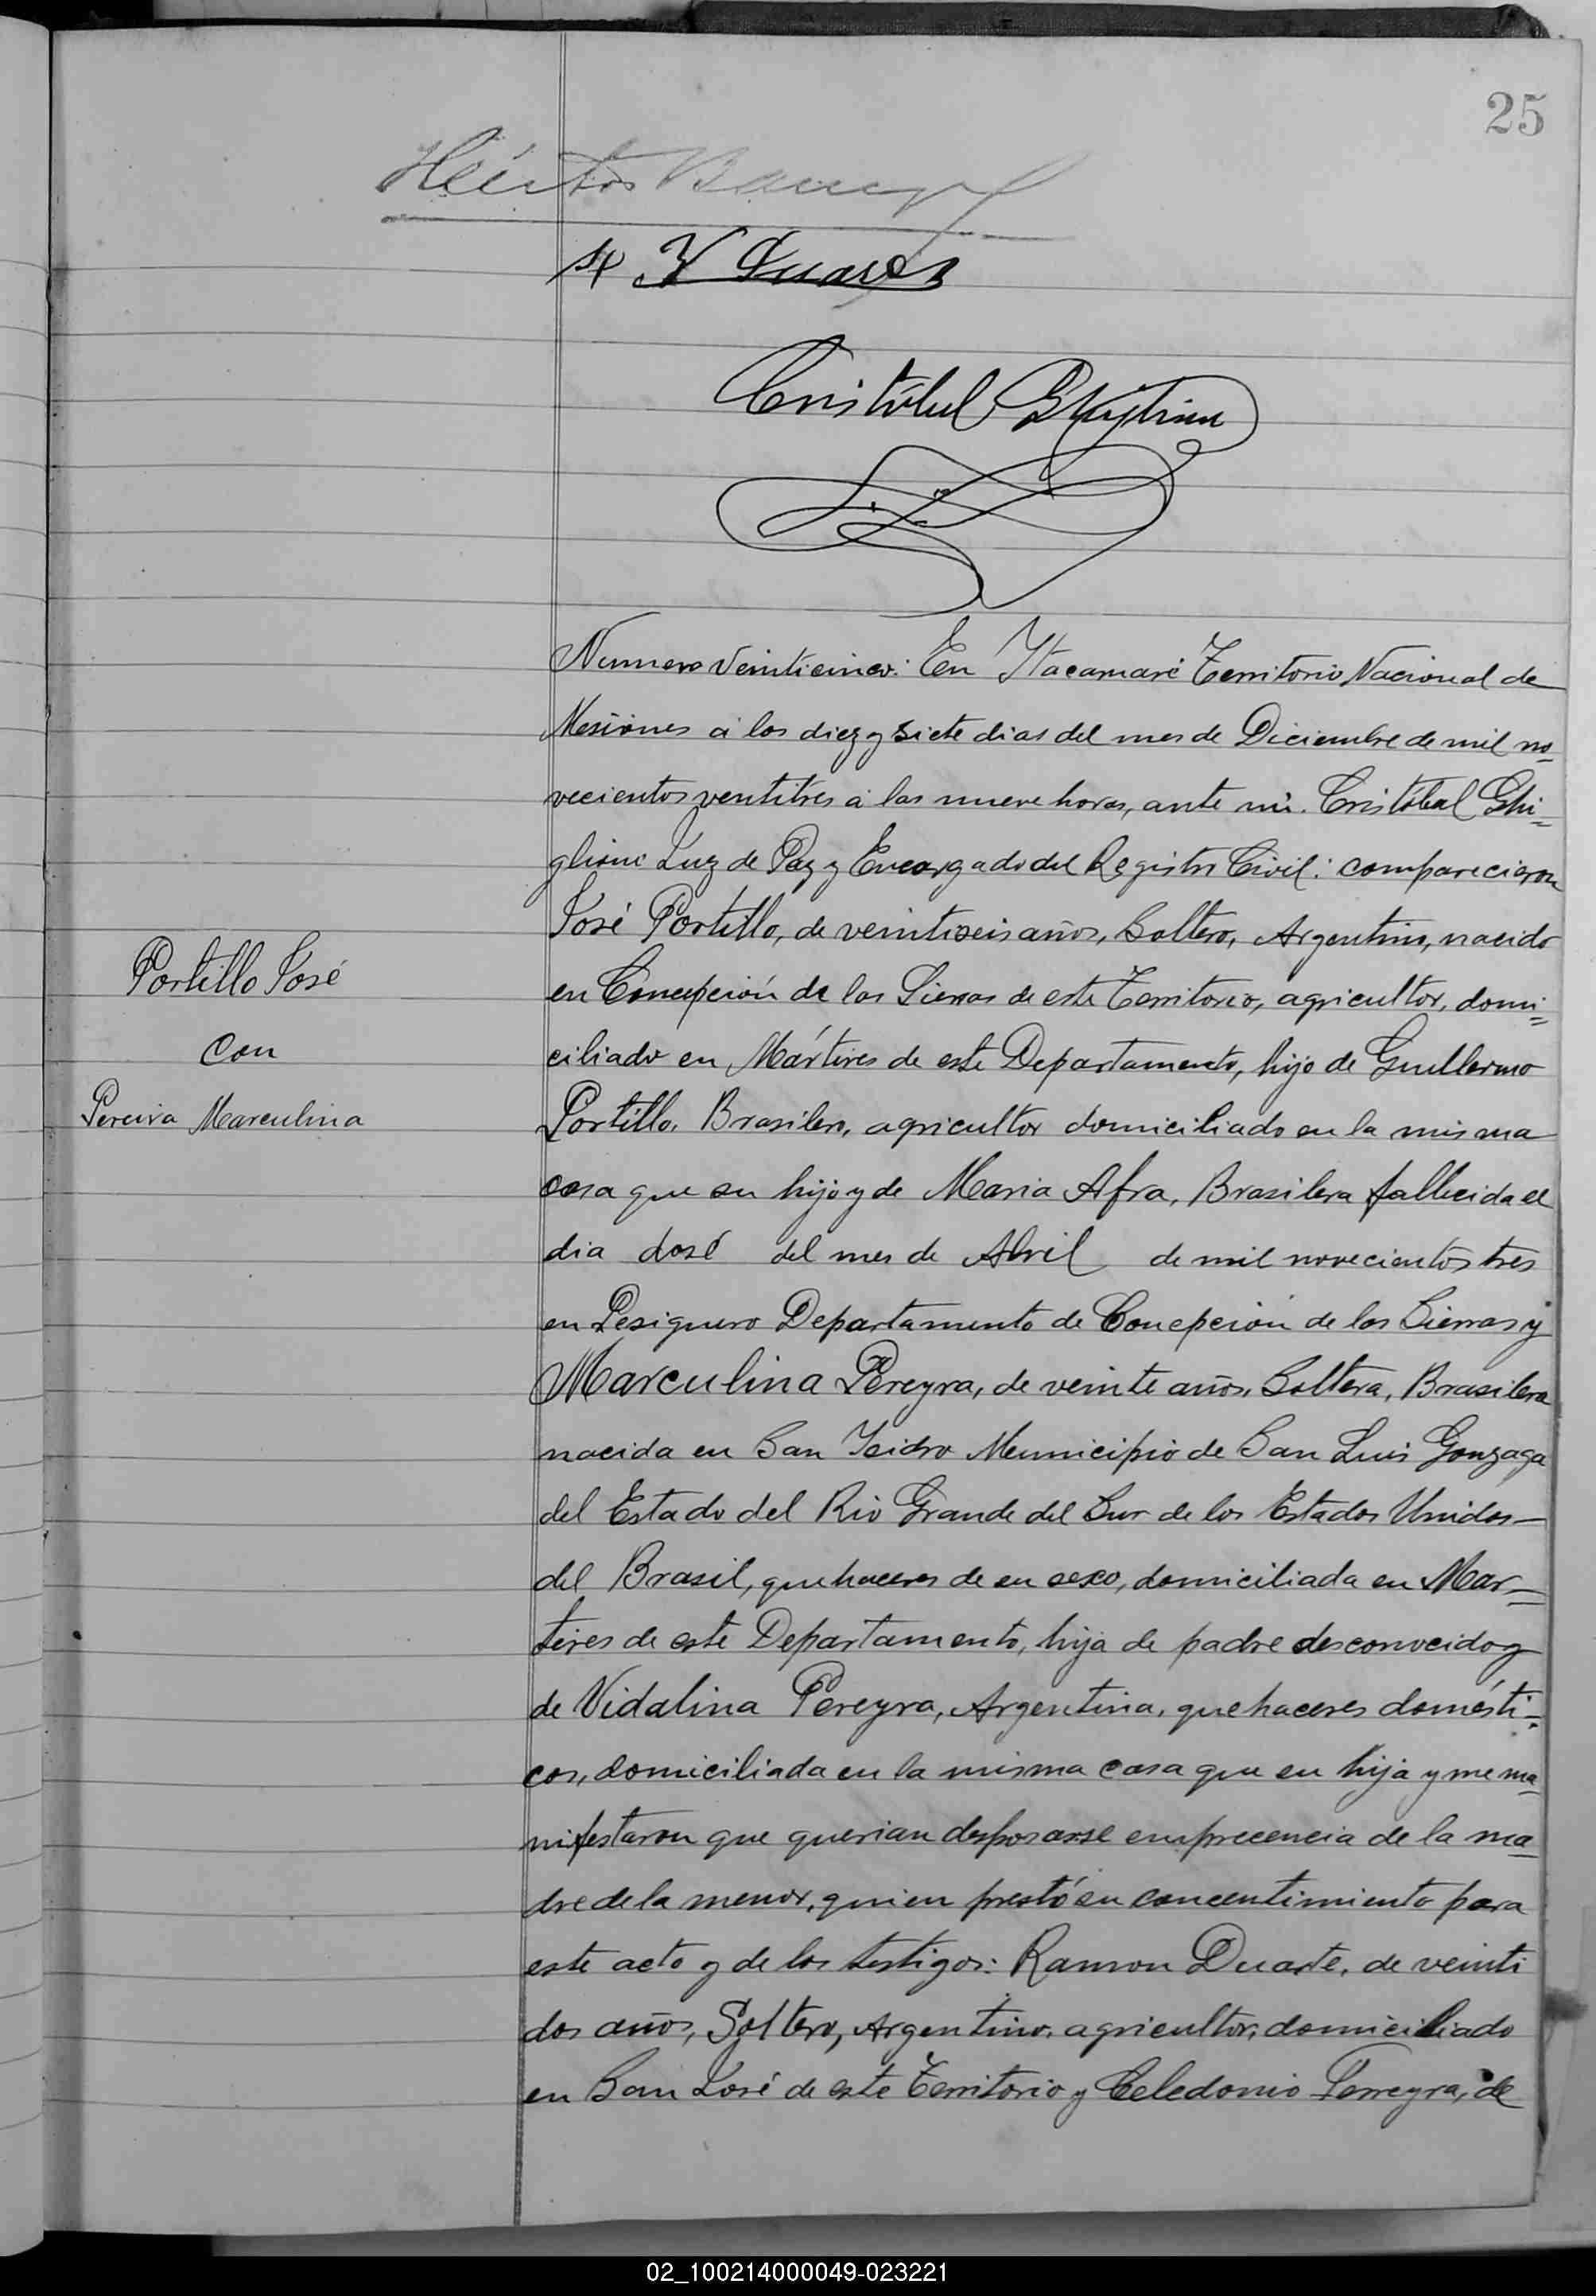 25
Héctor
Cristóbal Ghiglione
Numero veinticinco: En Itacaruaré Territorio Nacional de
Misiones á los diez y siete dias del mes de Diciembre de mil no-
vecientos ventitres á las nueve horas, ante mi. Cristóbal Ghi-
glione Juez de Paz y Encargado del Registro Civil: comparecieron
José Portillo, de veintiseis años, Soltero, Argentino, nacido
en Concepción de las Sierras de este Territorio, agricultor, domi-
ciliado en Mártires de este Departamento, hijo de Guillermo
Portillo, Brasilero, agricultor domiciliado en la misma
casa que su hijo y de Maria Afra, Brasilera fallecida el
dia dosé del mes de Abril de mil novecientos tres
en Persiguero Departamento de Concepción de las Sierras y
Marculina Pereyra, de veinte años, Soltera, Brasilera
nacida en San Isidro Municipio de San Luis Gonzaga
del Estado del Rio Grande del Sur de los Estados Unidos
del Brasil, quehaceres de su sexo, domiciliada en Mar-
tires de este Departamento, hija de padre desconocido y
de Vidalina Pereyra, Argentina, quehaceres domésti-
cos, domiciliada en la misma casa que su hija y me ma-
nifestaron que querian desposarse em precencia de la ma-
dre de la menor, quien prestó su concentimiento para
este acto y de los testigos: Ramon Duarte, de veinti
dos años, Soltero, Argentino, agricultor, domiciliado
en San José de este Territorio y Celedonio Perreyra, de
Portillo José
con
Pereira Marculina
02_100214000049-023221